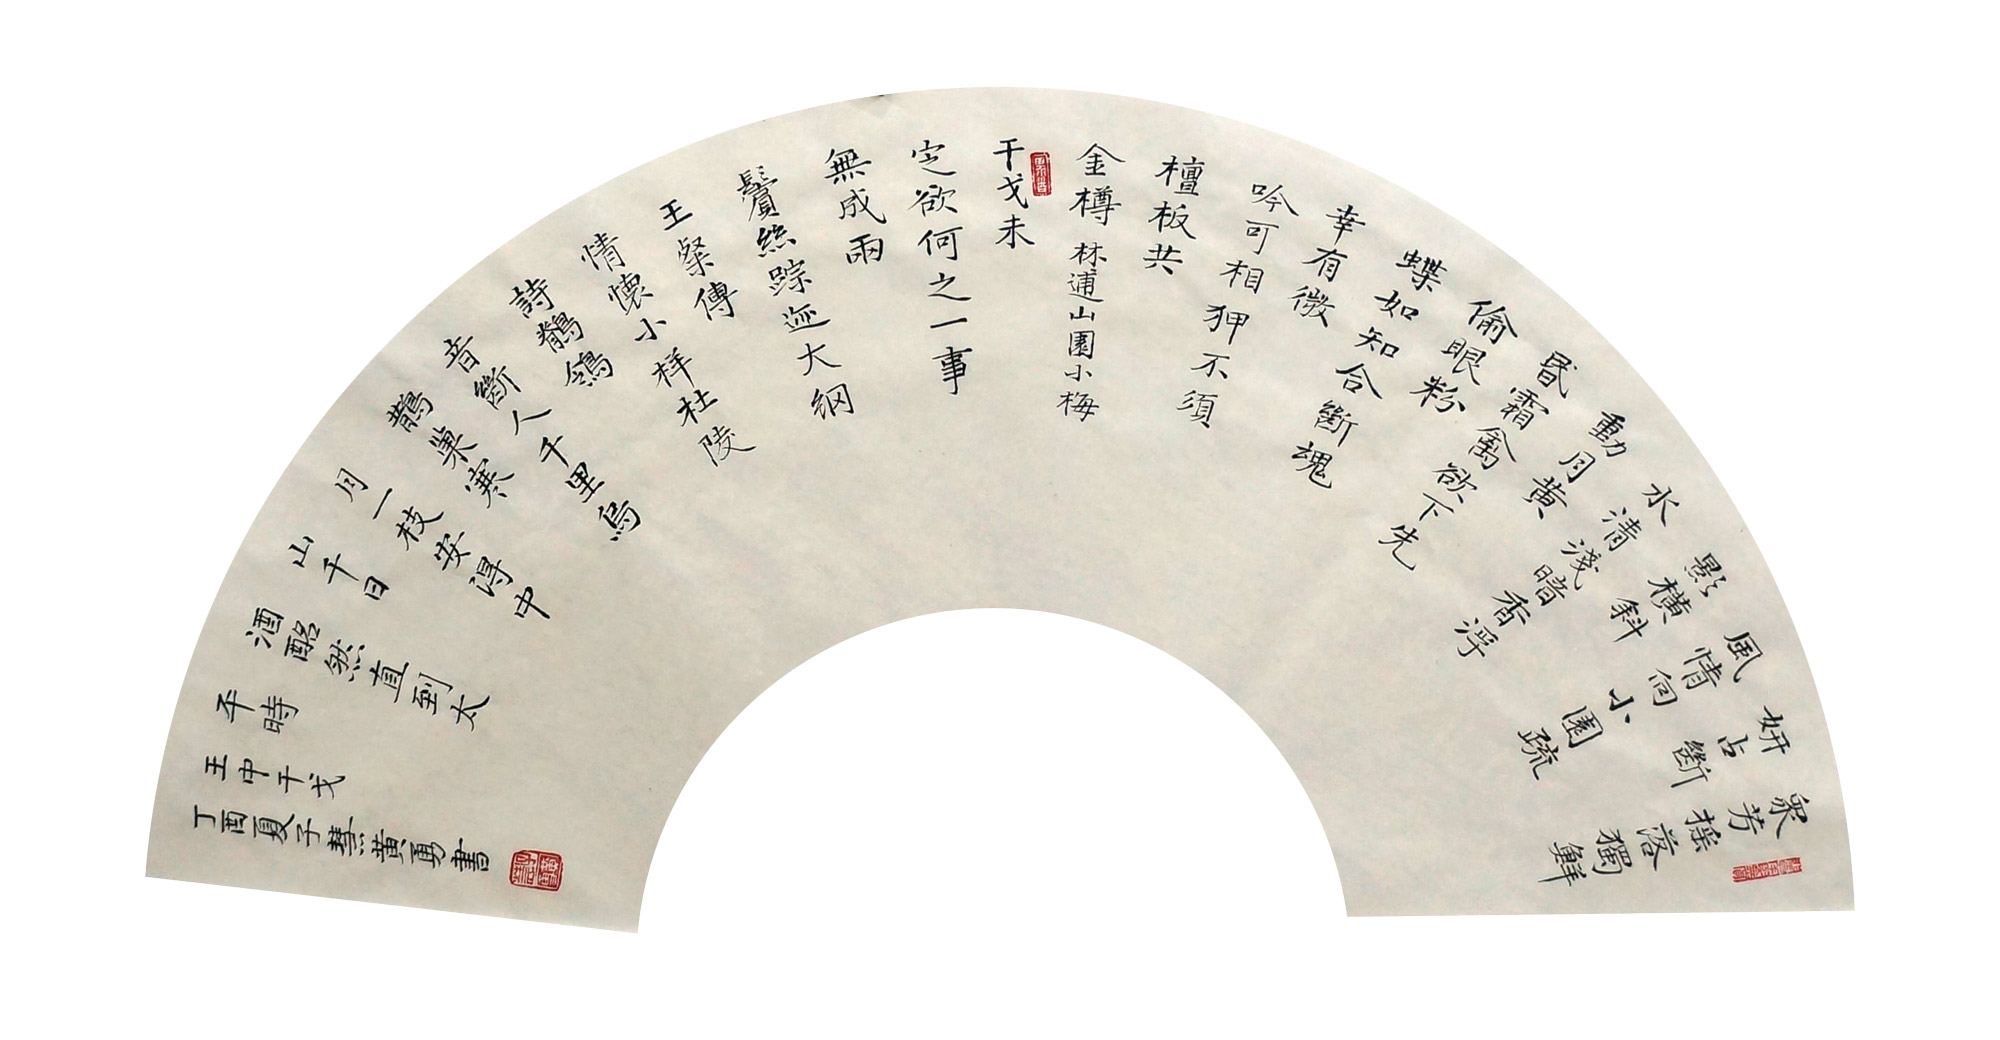 衆芳搖落獨鮮
妍占斷
風情向小園疏
影橫斜
水清淺暗香浮
動月黃
昏霜禽欲下先
偷眼粉
蝶如知合斷魂
幸有微
吟可相狎不須
檀板共
金樽 林逋山園小梅
干戈未
定欲何之一事
無成兩
鬢絲踪迹大纲
王粲傳
情懷小樣杜陵
詩鶺鴒
音斷人千里烏
鵲巢寒
月一枝安得中
山千日
酒酩然直到太
平時
王中干戈
丁酉夏子慧黄勇書